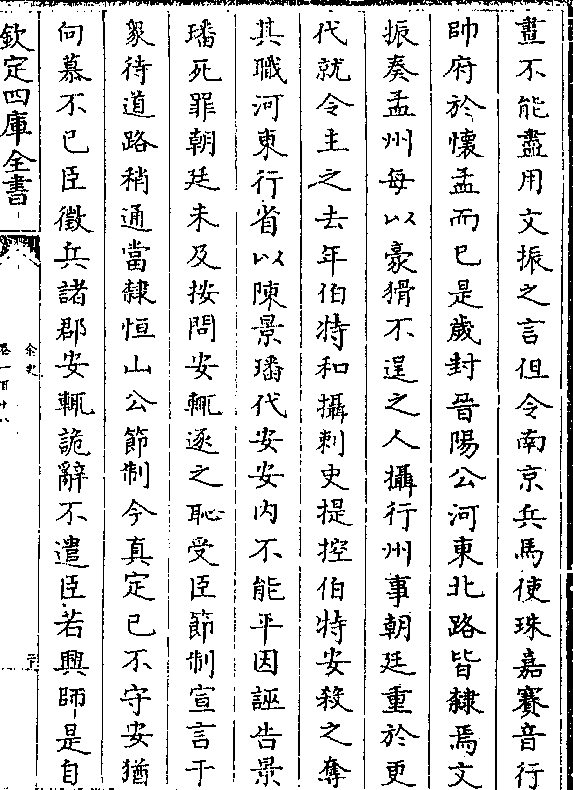 盡不能盡用文振之言但令南京兵馬使珠嘉賽音行
帥府於懷孟而已是歲封晉陽公河東北路皆隸焉文
振奏孟州每以豪猾不逞之人攝行州事朝廷重於更
代就令主之去年伯特和攝刺史提控伯特安殺之奪
其職河東行省以陳景璠代安安内不能平因誣告景
璠死罪朝廷未及按問安輒逐之恥受臣節制宣言于
衆待道路稍通當隸恒山公節制今真定已不守安猶
向慕不已臣徵兵諸郡安輒詭辭不遣臣若興師是自
欽定四庫全書
金史
卷一百十八